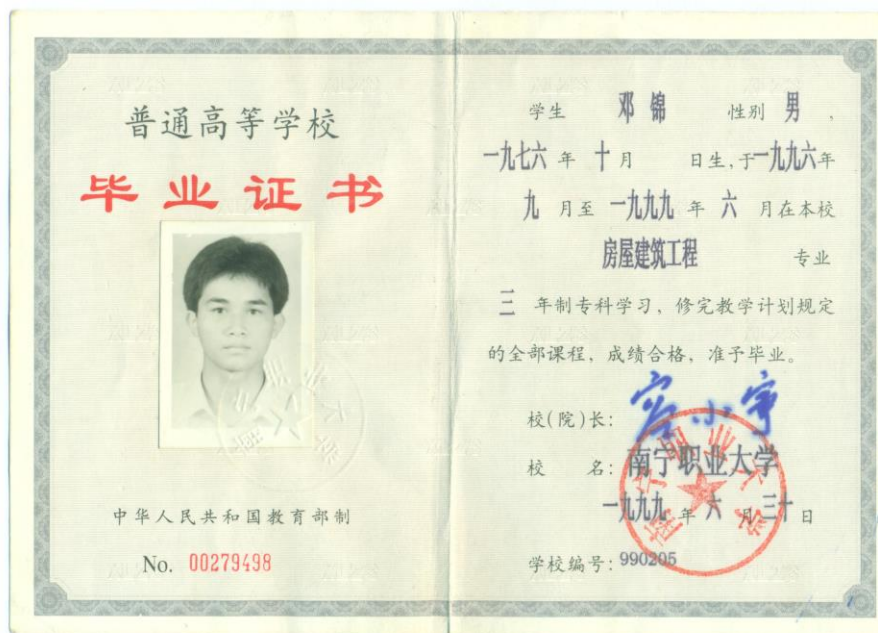 普通高等学校
毕业证书
中华人民共和国教育部制
No. 00279498
学生 邓锦 性别 男，
一九七六年十月 日生，于一九九六年
九月至一九九九年六月在本校
房屋建筑工程 专业
三年制专科学习，修完教学计划规定
的全部课程，成绩合格，准予毕业。
校(院)长：
校 名：南宁职业大学
一九九九年六月三十日
学校编号：990205
南宁职业大学